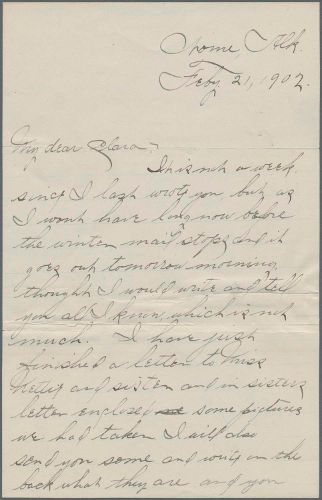 Nome, Alk.
Feby. 21, 1902.
My dear Clara:-
It is not a week
since I last wrote you but as
I won't have long now before
the winter mail stops and it
goes out tomorrow morning
thought I would write and tell
you all I know, which is not
much. I have just
finished a letter to Miss
and sister and in sisters
letter enclosed some pictures
we had taken I will also
send you some and write on the
back what they are and you